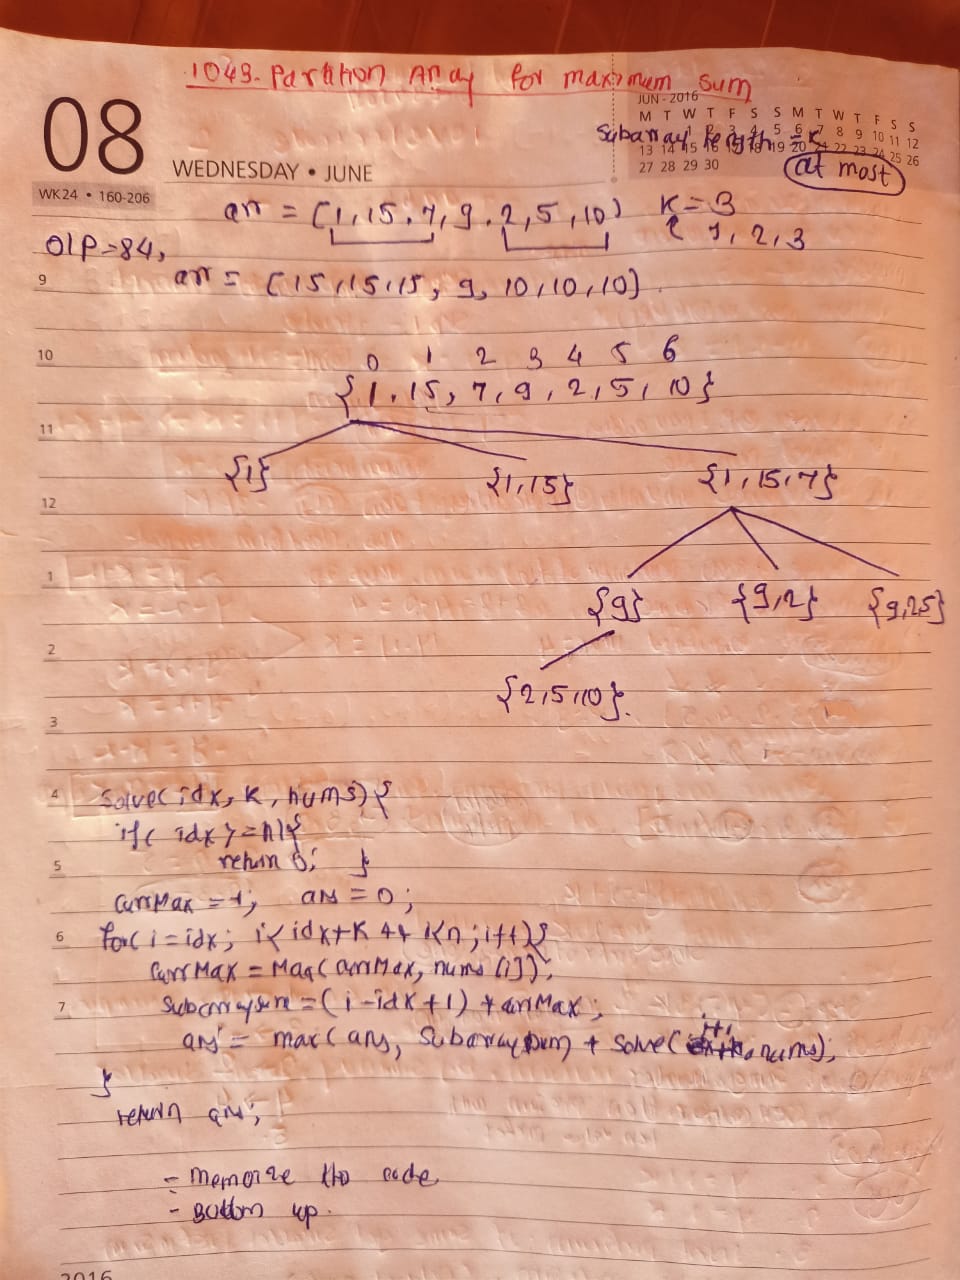 1049- Partition Array for maximum sum
08
JUN - 2016
M T W T F S S M T W T F S S
1 2 3 4 5 6 7 8 9 10 11 12
13 14 15 16 17 18 19 20 21 22 23 24 25 26
27 28 29 30
Subarray length = K
at most
WEDNESDAY • JUNE
WK24 • 160-206
arr = [1, 15, 7, 9, 2, 5, 10] K=3
1, 2, 3
O/P=84,
9
arr = [15, 15, 15, 9, 10, 10, 10]
10
0 1 2 3 4 5 6
{1, 15, 7, 9, 2, 5, 10}
11
{1} {1, 15} {1, 15, 7}
12
1
{9} {9,2} {9,2,5}
2
{2,5,10}.
3
4
Solve(idx, K, nums){
if( idx >= n){
5
return 0; }
currMax = -1; ans = 0;
6
for( i = idx; i < idx+K && i<n; i++){
currMax = Max(currMax, nums[i]);
7
Subarraysum = (i - idx + 1) * currMax;
ans = max(ans, Subarraysum + Solve(i+1, nums);
}
return ans;
- Memorize the code
- Bottom up.
2016